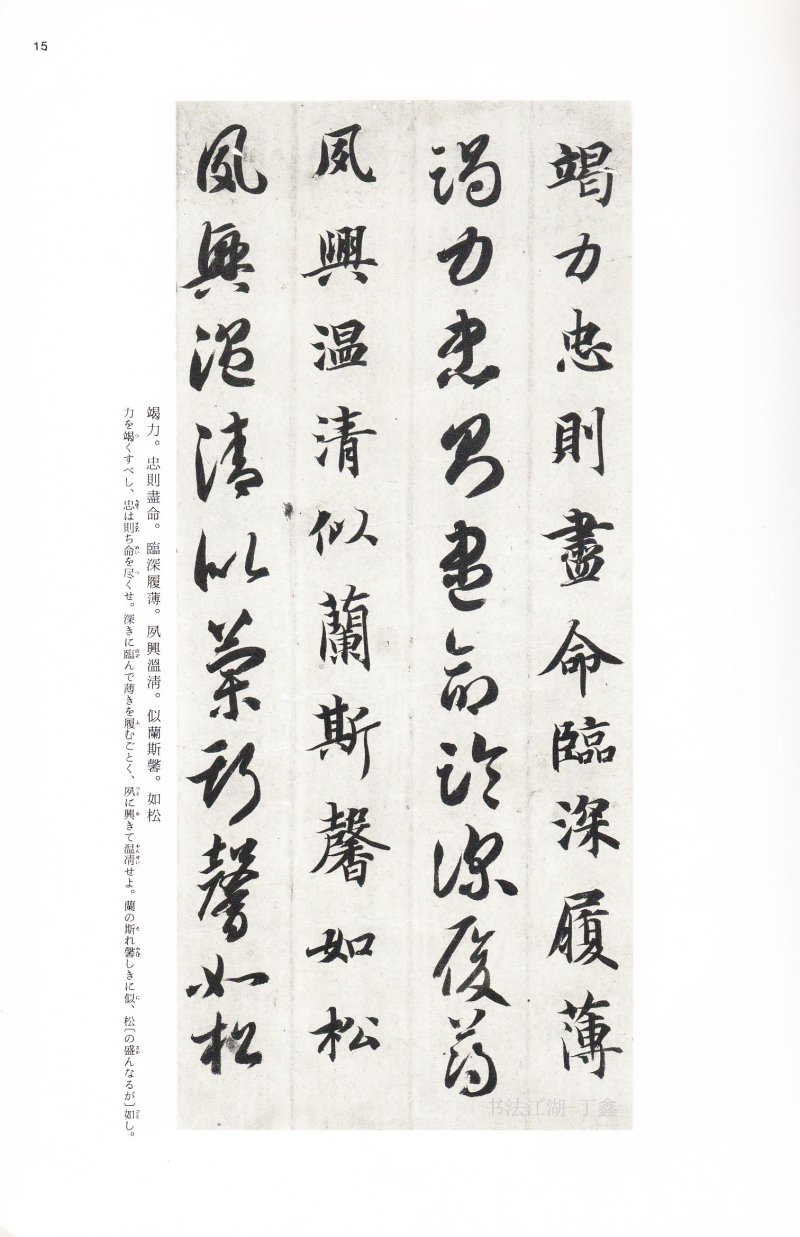 15
竭力忠則盡命臨深履薄
竭力忠則盡命臨深履薄
夙興温清似蘭斯馨如松
夙興温清似蘭斯馨如松
竭力。忠則盡命。臨深履薄。夙興溫凊。似蘭斯馨。如松
力を竭くすべし、忠は則ち命を尽くせ。深きに臨んで薄きを履むごとく、夙に興きて温凊せよ。蘭の斯れ馨しきに似、松〔の盛んなるが〕如し。
书法江湖-丁鑫